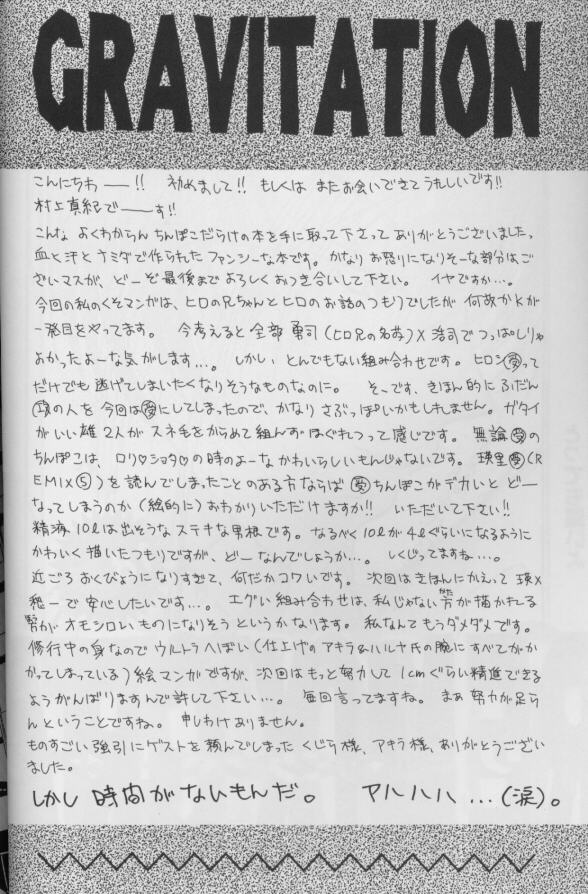 GRAVITATION
こんにちわ――!! 初めまして!! もしくは またお会いできて うれしいです!!
村上真紀で――す!!
こんな よくわからん ちんぽこだらけの本を手に取って下さって ありがとうございました。
血と汗とナミダで作られた ファンシーな本です。かなり お怒りになりそーな部分はご
ざいマスが、どーぞ最後まで よろしく おつき合いして下さい。 イヤですか…。
今回の私のくそマンガは、ヒロの兄ちゃんとヒロのお話のつもりでしたが 何故かKが
一発目をやってます。 今考えると全部 勇司(ヒロ兄の名前)×浩司で つっぱしりゃ
よかったよーな気がします…。 しかし、とんでもない組み合わせです。ヒロシ受って
だけでも 逃げてしまいたくなりそうなものなのに。 そーです、きほん的に ふだん
攻の人を 今回は受にしてしまったので、かなり さぶっぽいかもしれません。ガタイ
がいい雄2人が スネ毛をからめて組んず ほぐれつって感じです。 無論 受の
ちんぽこは、ロリ♡ショタ♡の時のよーな かわいらしいもんじゃないです。 瑛里受(R
EMIX⑤)を読んでしまったことのある方ならば 受ちんぽこが デカいと どー
なってしまうのか(絵的に)おわかりいただけますか!! いただいて下さい!!
精液 10ℓは出そうな ステキな男根です。なるべく 10ℓが 4ℓぐらいになるように
かわいく 描いたつもりですが、どーなんでしょうか…。 しくじってますね…。
近ごろ おくびょうになりすぎて、何だかコワいです。 次回はきほんにかえって 瑛×
愁一で 安心したいです…。 エグい組み合わせは、私じゃない方が描かれる
方が オモシロいものになりそう というかなります。 私なんて もうダメダメです。
修行中の身なので ウルトラへぼい(仕上げのアキラ&ハルヤ氏の腕に すべてがか
かってしまっている)絵マンガですが、次回はもっと努力して 1cmぐらい精進できる
ようがんばりますんで許して下さい…。 毎回言ってますね。 まぁ 努力が足ら
んということですね。 申しわけありません。
ものすごい強引にゲストを頼んでしまった くじら様、アキラ様、ありがとうござい
ました。
しかし 時間がないもんだ。 アハハハ…(涙)。